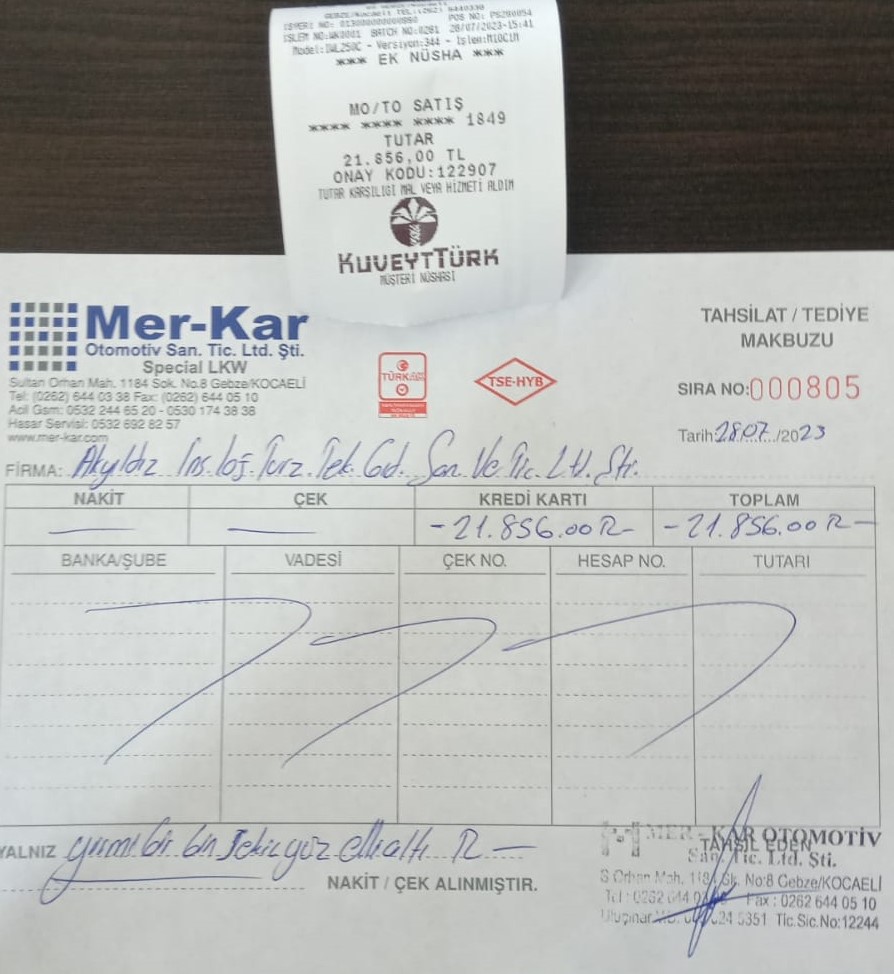 GEBZE/KOCAELİ TEL:(262) 6440338
İŞYERİ NO: POS NO: PS280054
İŞLEM NO: BATCH NO:0281 28/07/2023-15:41
Model:IWL250C - Versiyon:344 - İşlen:M10C1M
*** EK NÜSHA ***
MO/TO SATIŞ
**** **** **** 1849
TUTAR
21.856,00 TL
ONAY KODU:122907
TUTAR KARŞILIĞI MAL VEYA HİZMETİ ALDIM
KUVEYTTÜRK
MÜŞTERİ NÜSHASI
Mer-Kar
Otomotiv San. Tic. Ltd. Şti.
Special LKW
Sultan Orhan Mah. 1184 Sok. No.8 Gebze/KOCAELİ
Tel: (0262) 644 03 38 Fax: (0262) 644 05 10
Acil Gsm: 0532 244 65 20 - 0530 174 38 38
Hasar Servisi: 0532 692 82 57
www.mer-kar.com
TÜRK
TSE-HYB
TAHSİLAT / TEDİYE
MAKBUZU
SIRA NO:000805
Tarih:28.07./2023
FİRMA: Akyıldız İnş. Loj. Turz. Tek. Gd. San. Ve Tic. Ltd. Şti.
NAKİT ÇEK KREDİ KARTI TOPLAM
-21.856.00 TL- -21.856.00 TL-
BANKA/ŞUBE VADESİ ÇEK NO. HESAP NO. TUTARI
YALNIZ yirmi bir bin sekiz yüz elli altı TL —
NAKİT / ÇEK ALINMIŞTIR.
TAHSİL EDEN
MER - KAR OTOMOTİV
San. Tic. Ltd. Şti.
S Orhan Mah. 1184 Sk. No:8 Gebze/KOCAELİ
Tel : 0262 644 Fax : 0262 644 05 10
Uluçınar 5351 Tic.Sic.No:12244